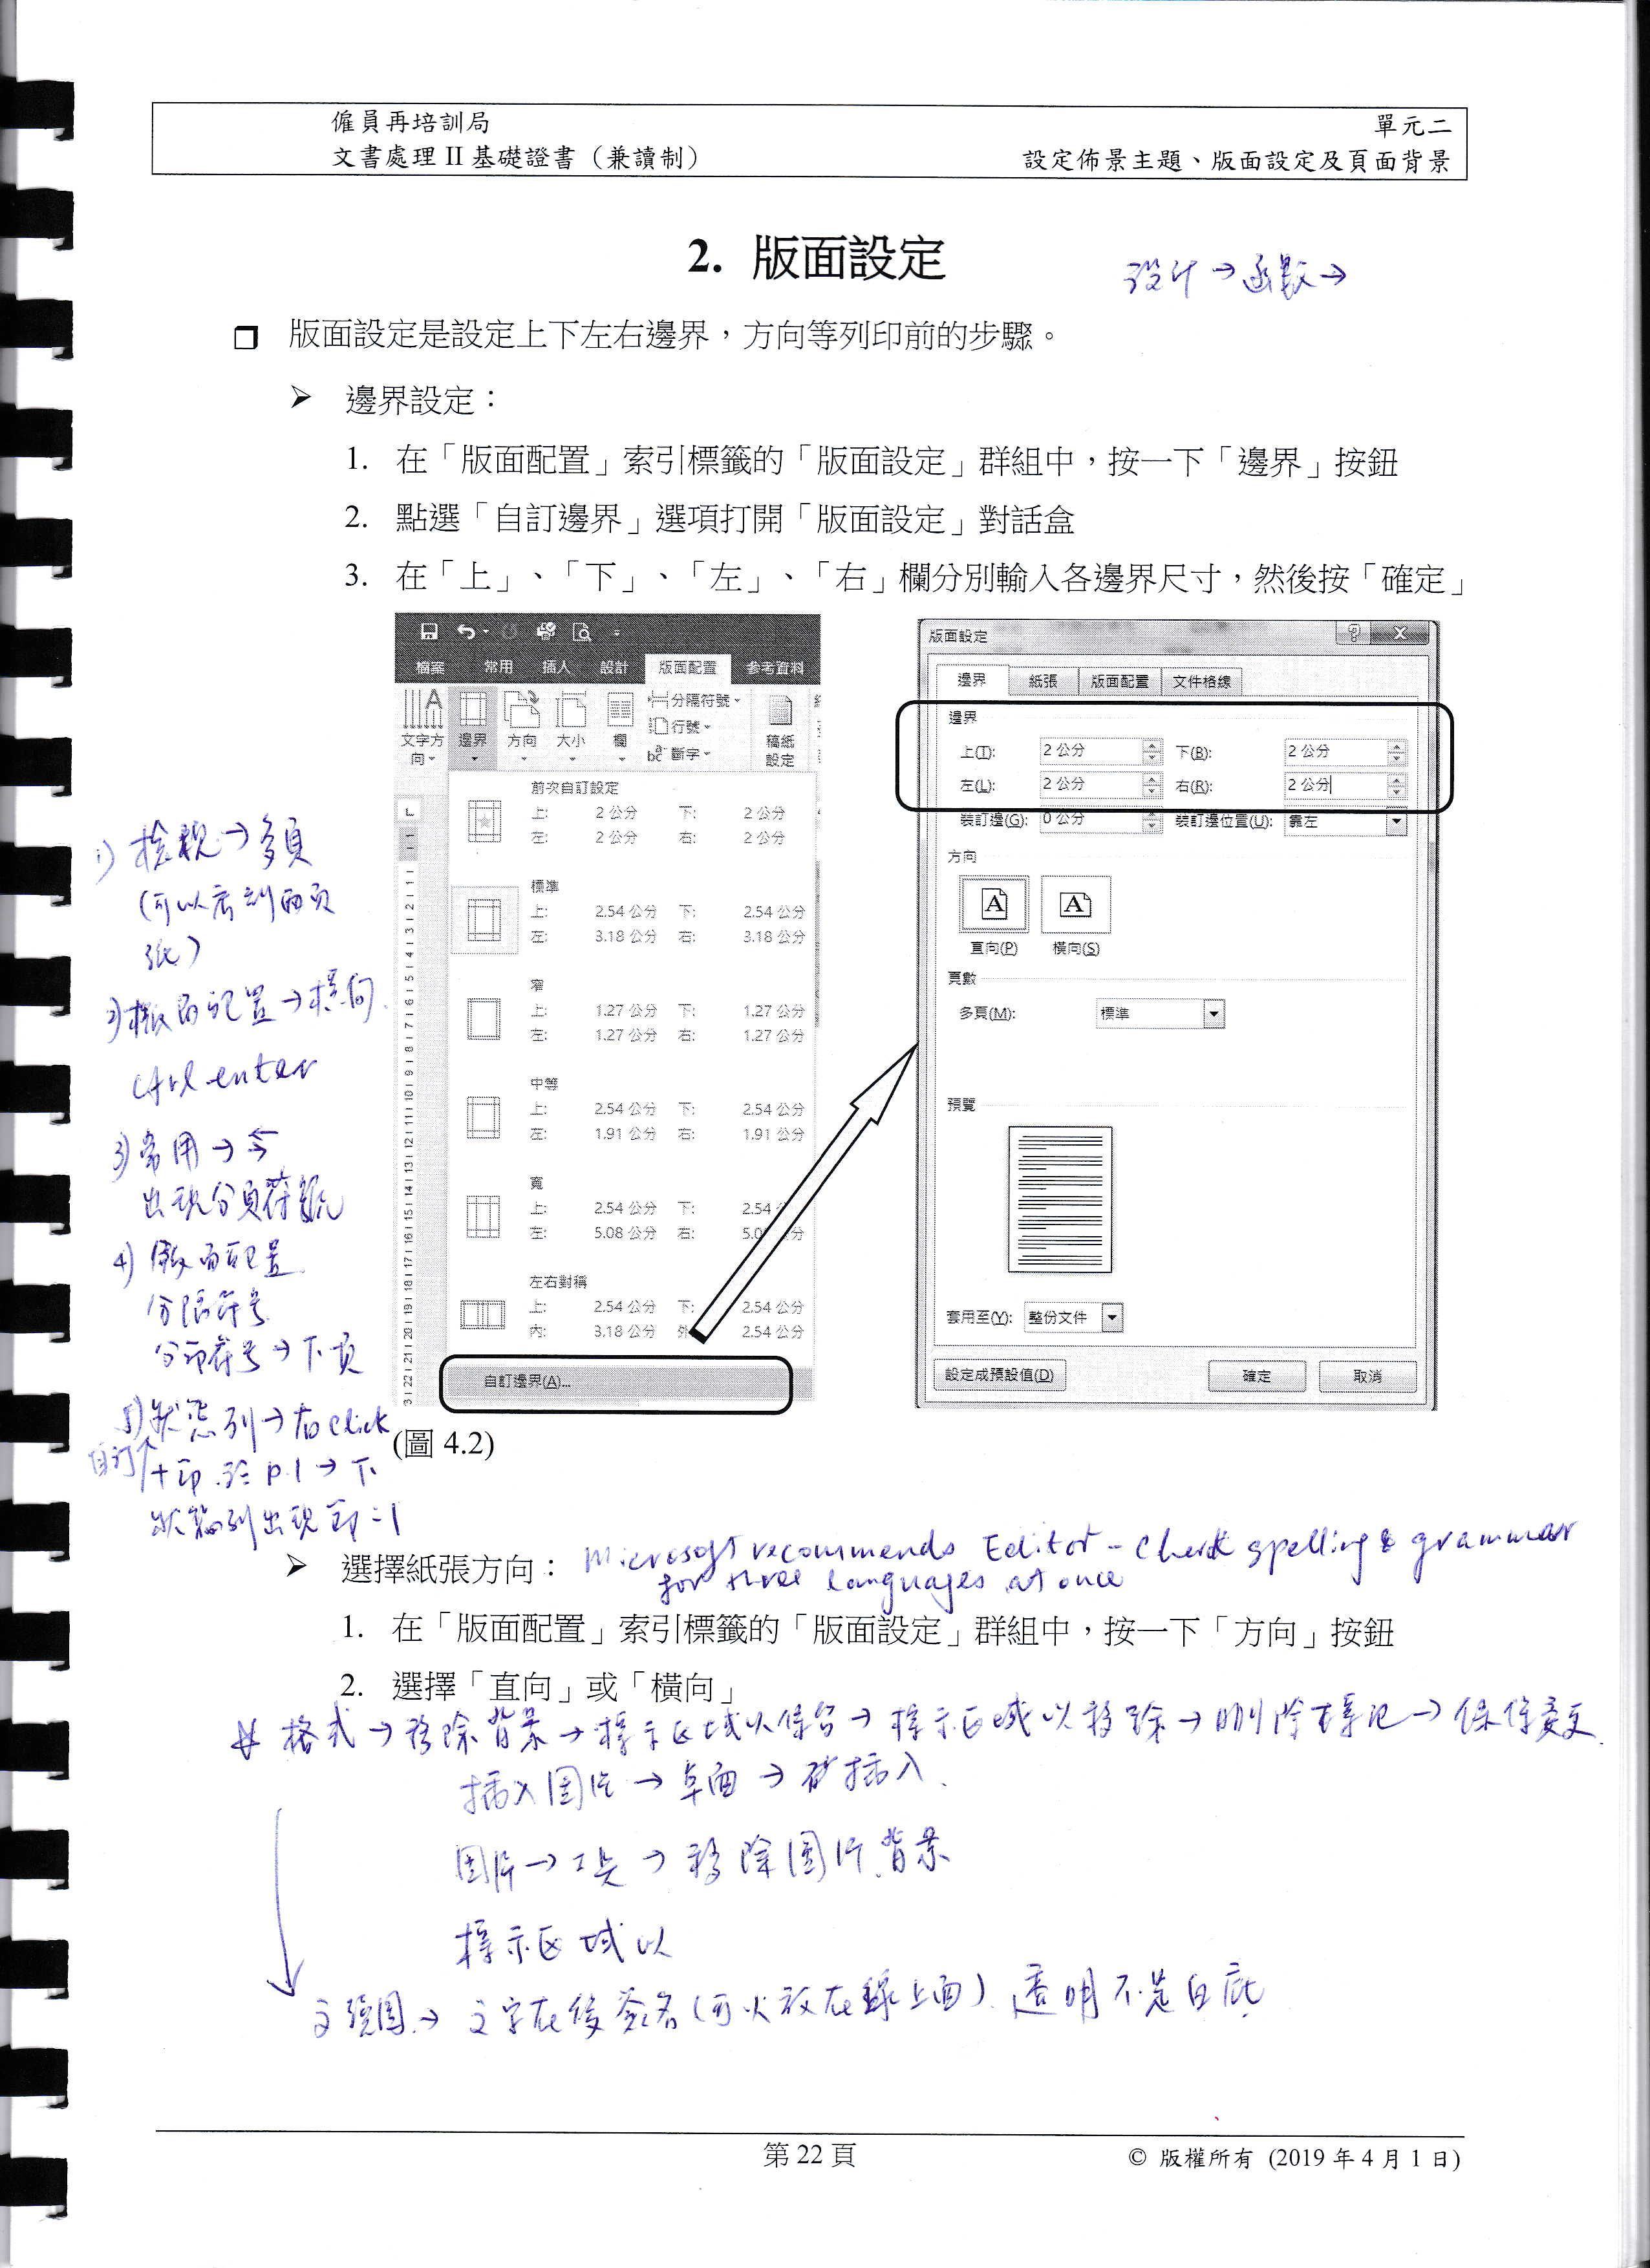 僱員再培訓局
文書處理 II 基礎證書（兼讀制）
單元二
設定佈景主題、版面設定及頁面背景
2. 版面設定
设计→函數→
版面設定是設定上下左右邊界，方向等列印前的步驟。
➢ 邊界設定：
1. 在「版面配置」索引標籤的「版面設定」群組中，按一下「邊界」按鈕
2. 點選「自訂邊界」選項打開「版面設定」對話盒
3. 在「上」、「下」、「左」、「右」欄分別輸入各邊界尺寸，然後按「確定」
檔案 常用 插入 設計 版面配置 參考資料
文字方向 邊界 方向 大小 欄
分隔符號
行號
斷字
稿紙設定
前次自訂設定
上: 2 公分 下: 2 公分
左: 2 公分 右: 2 公分
標準
上: 2.54 公分 下: 2.54 公分
左: 3.18 公分 右: 3.18 公分
窄
上: 1.27 公分 下: 1.27 公分
左: 1.27 公分 右: 1.27 公分
中等
上: 2.54 公分 下: 2.54 公分
左: 1.91 公分 右: 1.91 公分
寬
上: 2.54 公分 下: 2.54
左: 5.08 公分 右: 5.0 分
左右對稱
上: 2.54 公分 下: 2.54 公分
內: 3.18 公分 外 2.54 公分
自訂邊界(A)...
版面設定
邊界 紙張 版面配置 文件格線
邊界
上(T): 2 公分 下(B): 2 公分
左(L): 2 公分 右(R): 2 公分
裝訂邊(G): 0 公分 裝訂邊位置(U): 靠左
方向
直向(P) 橫向(S)
頁數
多頁(M): 標準
預覽
套用至(Y): 整份文件
設定成預設值(D) 確定 取消
(圖 4.2)
1) 檢視→多頁
(可以看到两页
张)
2) 版面配置→横向
ctrl enter
3) 常用→
出現分頁符號
4) 版面配置
分隔符号
分節符号→下頁
5) 狀态列→右click
自订
十節 於 p.1→下
狀態列出現節:1
➢ 選擇紙張方向：
Microsoft recommends Editor - Check spelling & grammar
for three languages at once
1. 在「版面配置」索引標籤的「版面設定」群組中，按一下「方向」按鈕
2. 選擇「直向」或「橫向」
格式→移除背景→標示区域以保留→標示区域以移除→刪除標记→保存变更
插入图片→桌面→插入
图片→工具→移除圖片背景
標示区域以
文繞图→文字在後 签名(可以放在線上面) 透明不是白底
第 22 頁
© 版權所有 (2019 年 4 月 1 日)